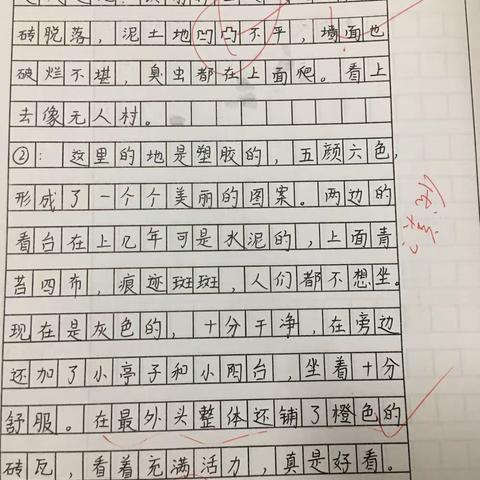 砖脱落，泥土地凹凸不平，墙面也
破烂不堪，臭虫都在上面爬。看上
去像无人村。
②：这里的地是塑胶的，五颜六色，
形成了一个个美丽的图案。两边的
看台在上几年可是水泥的，上面青
苔四布，痕迹斑斑，人们都不想坐。
现在是灰色的，十分干净，在旁边
还加了小亭子和小阁台，坐着十分
舒服。在最外头整体还铺了橙色的
砖瓦，看着充满活力，真是好看。